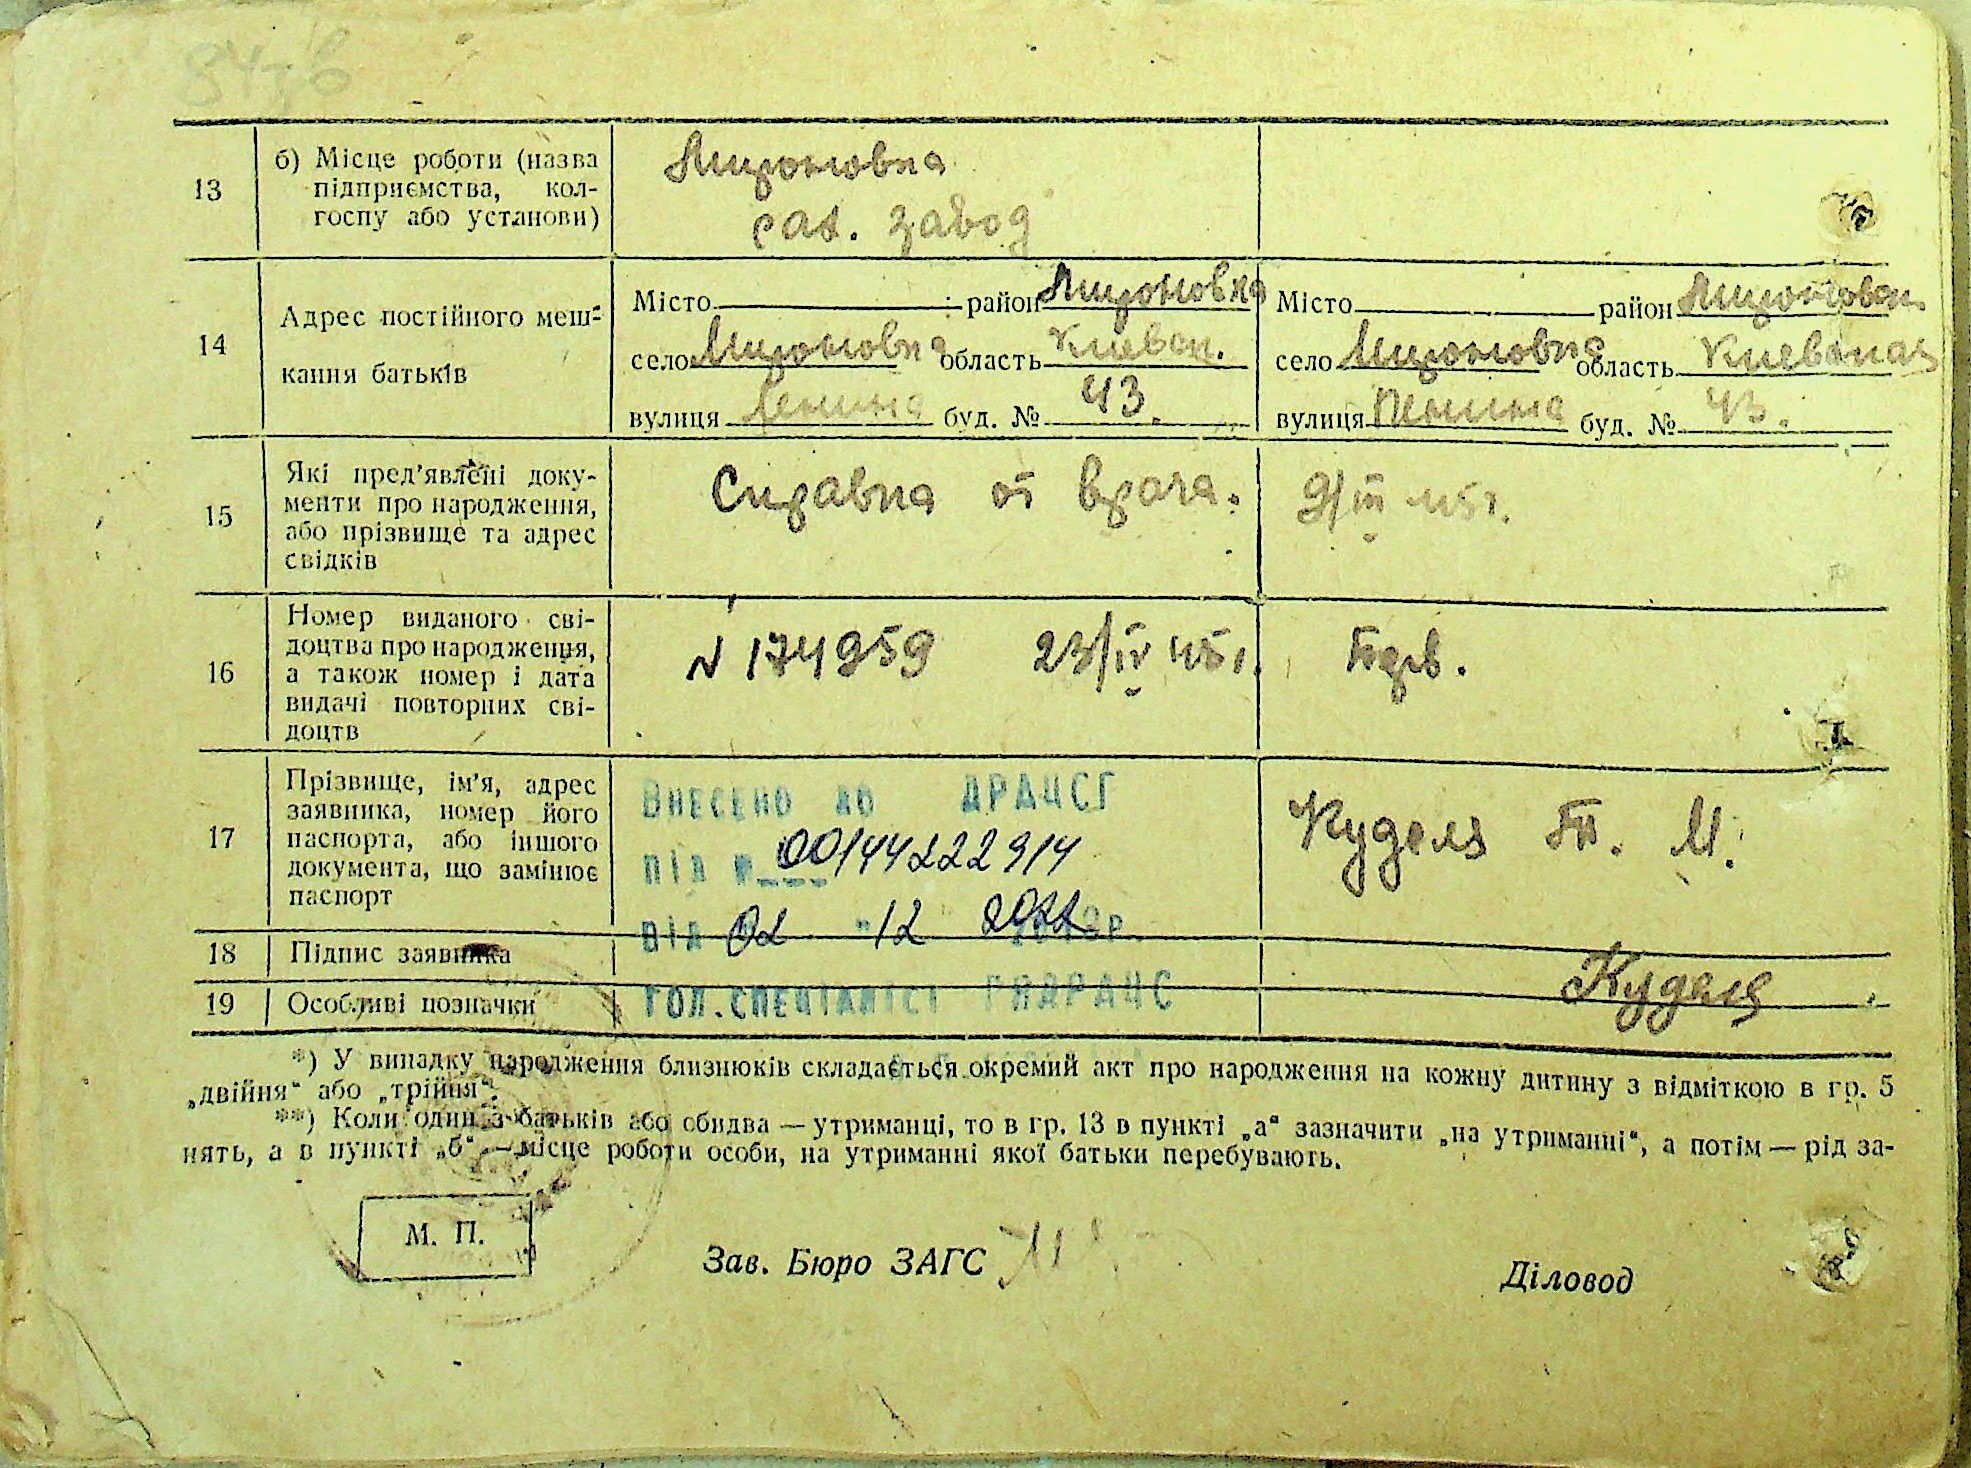 13
б) Місце роботи (назва
підприємства, кол-
госпу або установи)
Мироновка
сах. завод
14
Адрес постійного меш-
кання батьків
Місто район Мироновка
село Мироновка область Киевск.
вулиця Ленина буд. № 43.
Місто район Мироновск
село Мироновка область Киевская
вулиця Ленина буд. № 43.
15
Які пред'явлені доку-
менти про народження,
або прізвище та адрес
свідків
Справка от врача.
9/III 45 г.
16
Номер виданого сві-
доцтва про народження,
а також номер і дата
видачі повторних сві-
доцтв
N 174959 23/IV 45 г.
17
Прізвище, ім'я, адрес
заявника, номер його
паспорта, або іншого
документа, що замінює
паспорт
Внесено до ДРАЦСГ
під № 00144222914
від 02 12 2022р.
гол.спеціаліст
Куделя Т. М.
18
Підпис заявника
Куделя
19
Особливі позначки
*) У випадку народження близнюків складається окремий акт про народження на кожну дитину з відміткою в гр. 5
„двійня“ або „трійня“.
**) Коли один з батьків або обидва — утриманці, то в гр. 13 в пункті „а“ зазначити „на утриманні“, а потім — рід за-
нять, а в пункті „б“ — місце роботи особи, на утриманні якої батьки перебувають.
М. П.
Зав. Бюро ЗАГС
Діловод